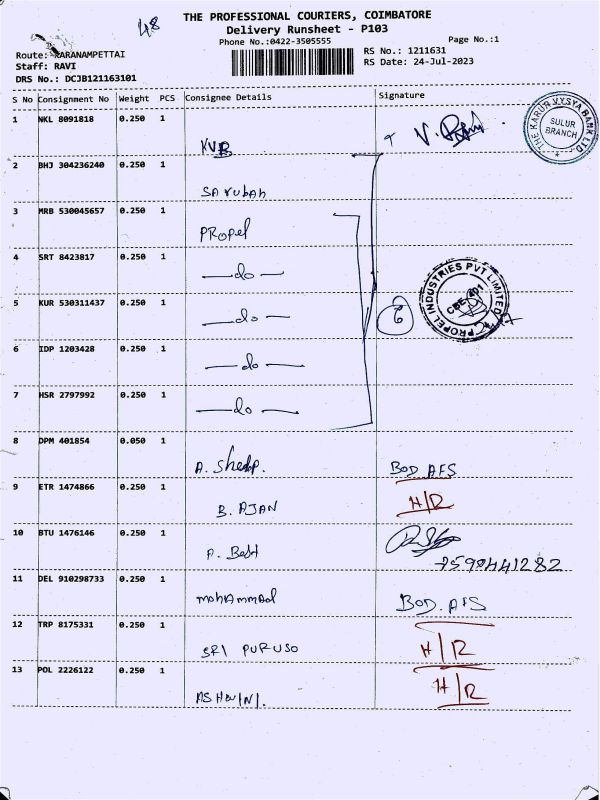 48
THE PROFESSIONAL COURIERS, COIMBATORE
Delivery Runsheet - P103
Phone No.:0422-3505555 Page No.:1
Route: KARANAMPETTAI RS No.: 1211631
Staff: RAVI RS Date: 24-Jul-2023
DRS No.: DCJB121163101
S No Consignment No Weight PCS Consignee Details Signature
1 NKL 8091818 0.250 1 KVB
THE KARUR VYSYA BANK LTD.
SULUR
BRANCH
2 BHJ 304236240 0.250 1
3 MRB 530045657 0.250 1 PROPel
4 SRT 8423817 0.250 1 —do—
5 KUR 530311437 0.250 1 —do— 6
PROPEL INDUSTRIES PVT LIMITED
6 IDP 1203428 0.250 1 —do—
7 HSR 2797992 0.250 1 —do—
8 DPM 401854 0.050 1 BOD AFS
9 ETR 1474866 0.250 1 B. AJAN H/R
10 BTU 1476146 0.250 1
7598441282
11 DEL 910298733 0.250 1 mohAmmad BOD. AFS
12 TRP 8175331 0.250 1 SRI PURUSO H/R
13 POL 2226122 0.250 1 ASHWINI. H/R